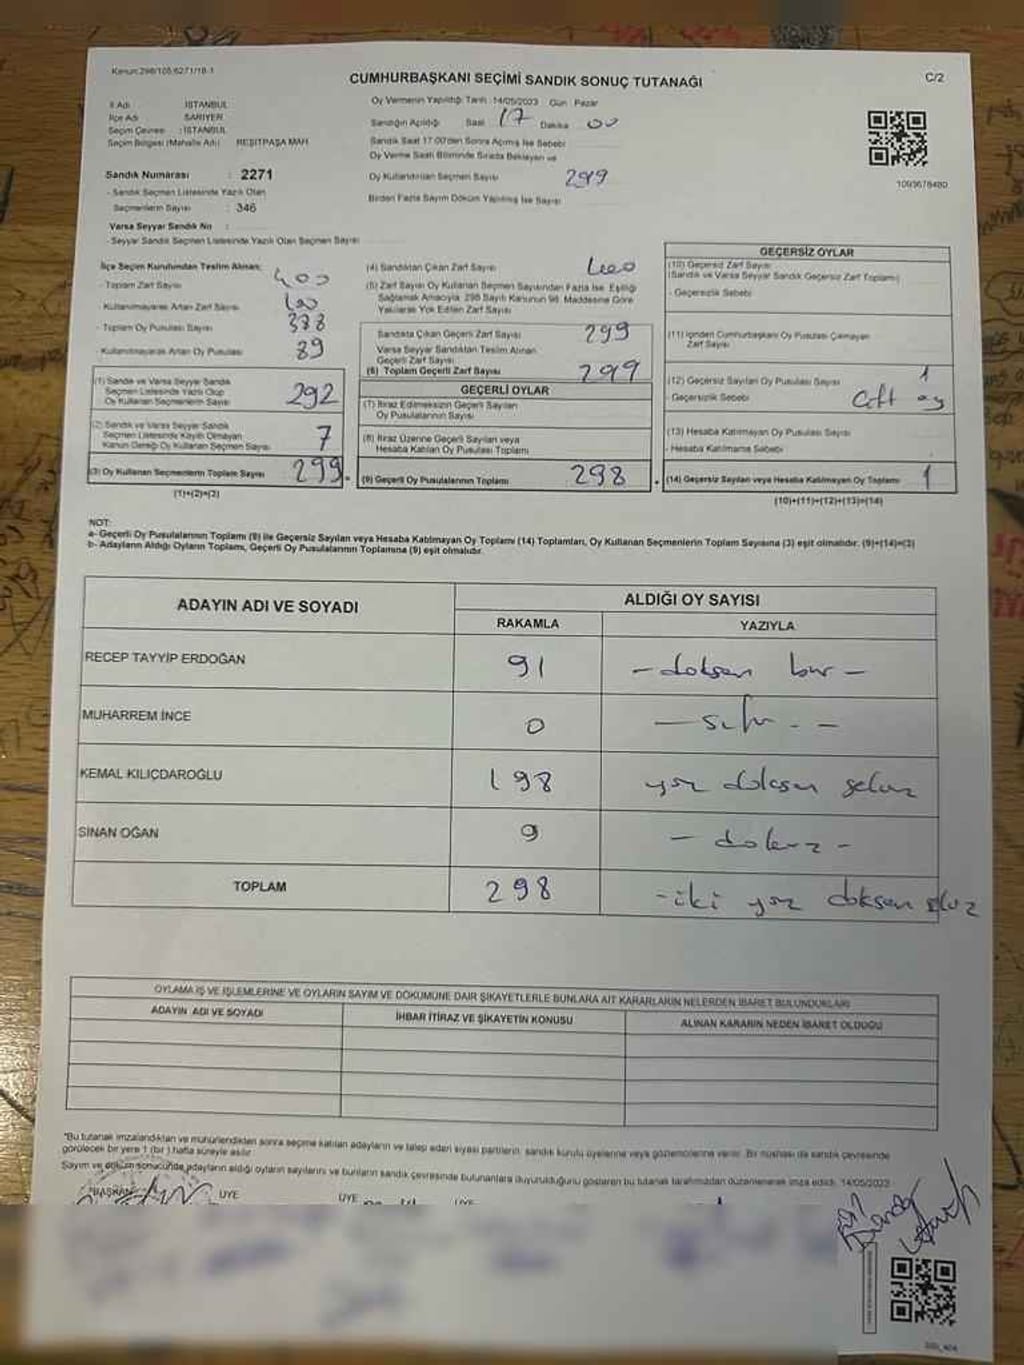 Kanun:298/105,6271/18-1
CUMHURBAŞKANI SEÇİMİ SANDIK SONUÇ TUTANAĞI
C/2
İl Adı : İSTANBUL
İlçe Adı : SARIYER
Seçim Çevresi : İSTANBUL
Seçim Bölgesi (Mahalle Adı) : REŞİTPAŞA MAH.
Oy Vermenin Yapıldığı Tarih : 14/05/2023 Gün : Pazar
Sandığın Açıldığı Saat 17 Dakika 00
Sandık Saat 17:00'den Sonra Açılmış İse Sebebi
Oy Verme Saati Bitiminde Sırada Bekleyen ve
Oy Kullandırılan Seçmen Sayısı 299
Birden Fazla Sayım Döküm Yapılmış İse Sayısı
Sandık Numarası : 2271
- Sandık Seçmen Listesinde Yazılı Olan
Seçmenlerin Sayısı : 346
Varsa Seyyar Sandık No :
- Seyyar Sandık Seçmen Listesinde Yazılı Olan Seçmen Sayısı
1093678480
İlçe Seçim Kurulundan Teslim Alınan;
- Toplam Zarf Sayısı 400
- Kullanılmayarak Artan Zarf Sayısı 100
- Toplam Oy Pusulası Sayısı
- Kullanılmayarak Artan Oy Pusulası 89
(1) Sandık ve Varsa Seyyar Sandık
Seçmen Listesinde Yazılı Olup
Oy Kullanan Seçmenlerin Sayısı 292
(2) Sandık ve Varsa Seyyar Sandık
Seçmen Listesinde Kayıtlı Olmayan
Kanun Gereği Oy Kullanan Seçmen Sayısı 7
(3) Oy Kullanan Seçmenlerin Toplam Sayısı 299
(1)+(2)=(3)
(4) Sandıktan Çıkan Zarf Sayısı
(5) Zarf Sayısı Oy Kullanan Seçmen Sayısından Fazla İse, Eşitliği
Sağlamak Amacıyla, 298 Sayılı Kanunun 98. Maddesine Göre
Yakılarak Yok Edilen Zarf Sayısı
Sandıkta Çıkan Geçerli Zarf Sayısı 299
Varsa Seyyar Sandıktan Teslim Alınan
Geçerli Zarf Sayısı
(6) Toplam Geçerli Zarf Sayısı 299
GEÇERLİ OYLAR
(7) İtiraz Edilmeksizin Geçerli Sayılan
Oy Pusulalarının Sayısı
(8) İtiraz Üzerine Geçerli Sayılan veya
Hesaba Katılan Oy Pusulaları Toplamı
(9) Geçerli Oy Pusulalarının Toplamı 298
GEÇERSİZ OYLAR
(10) Geçersiz Zarf Sayısı
(Sandık ve Varsa Seyyar Sandık Geçersiz Zarf Toplamı)
- Geçersizlik Sebebi
(11) İçinden Cumhurbaşkanı Oy Pusulası Çıkmayan
Zarf Sayısı
(12) Geçersiz Sayılan Oy Pusulası Sayısı 1
- Geçersizlik Sebebi Çift oy
(13) Hesaba Katılmayan Oy Pusulası Sayısı
- Hesaba Katılmama Sebebi
(14) Geçersiz Sayılan veya Hesaba Katılmayan Oy Toplamı 1
(10)+(11)+(12)+(13)=(14)
NOT:
a- Geçerli Oy Pusulalarının Toplamı (9) ile Geçersiz Sayılan veya Hesaba Katılmayan Oy Toplamı (14) Toplamları, Oy Kullanan Seçmenlerin Toplam Sayısına (3) eşit olmalıdır. (9)+(14)=(3)
b- Adayların Aldığı Oyların Toplamı, Geçerli Oy Pusulalarının Toplamına (9) eşit olmalıdır.
ADAYIN ADI VE SOYADI
ALDIĞI OY SAYISI
RAKAMLA YAZIYLA
RECEP TAYYİP ERDOĞAN 91 - doksan bir -
MUHARREM İNCE 0 - sıfır - -
KEMAL KILIÇDAROĞLU 198 yüz doksan sekiz
SİNAN OĞAN 9 - dokuz -
TOPLAM 298 - iki yüz doksan sekiz
OYLAMA İŞ VE İŞLEMLERİNE VE OYLARIN SAYIM VE DÖKÜMÜNE DAİR ŞİKAYETLERLE BUNLARA AİT KARARLARIN NELERDEN İBARET BULUNDUKLARI
ADAYIN ADI VE SOYADI İHBAR İTİRAZ VE ŞİKAYETİN KONUSU ALINAN KARARIN NEDEN İBARET OLDUĞU
*Bu tutanak imzalandıktan ve mühürlendikten sonra seçime katılan adayların ve talep eden siyasi partilerin, sandık kurulu üyelerine veya gözlemcilerine verilir. Bir nüshası da sandık çevresinde
görülecek bir yere 1 (bir) hafta süreyle asılır.
Sayım ve döküm sonucunda adayların aldığı oyların sayılarını ve bunların sandık çevresinde bulunanlara duyurulduğunu gösteren bu tutanak tarafımızdan düzenlenerek imza edildi. 14/05/2023
BAŞKAN ÜYE ÜYE ÜYE